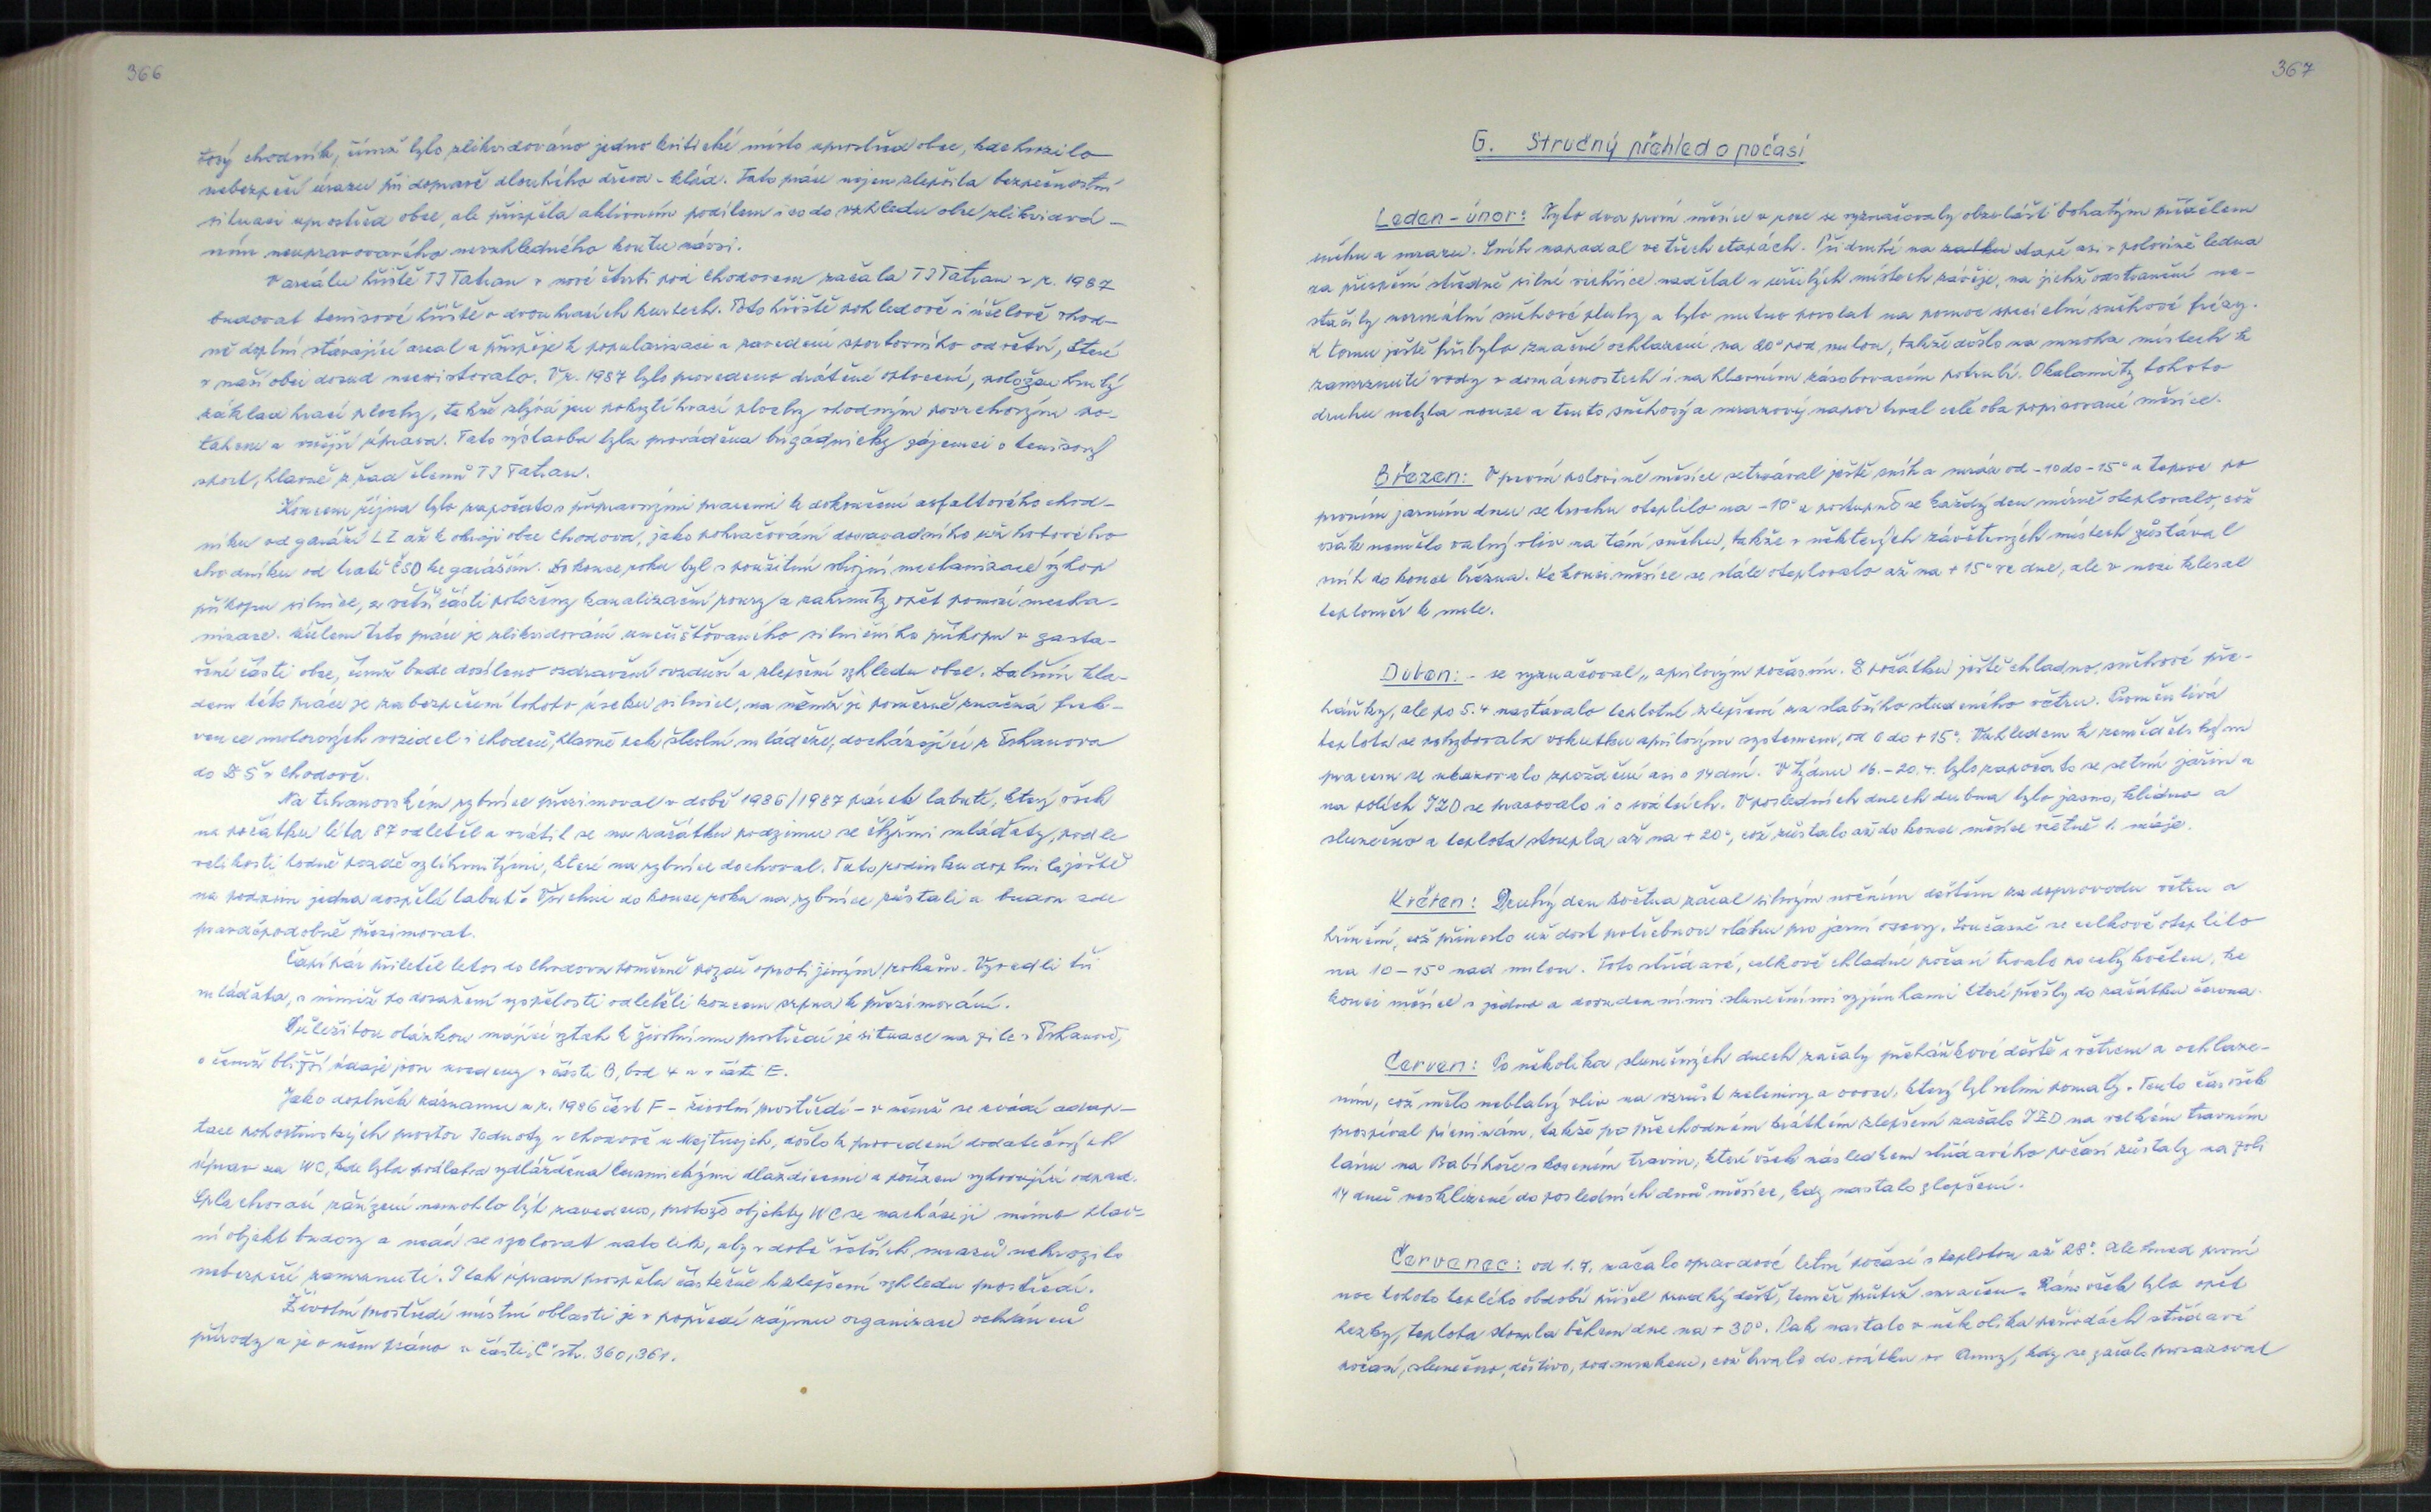 366
tový chodník, čímž bylo zlikvidováno jedno kritické místo uprostřed obce, kde hrozilo
nebezpečí úrazu při dopravě dlouhého dřeva - klád. Tato práce nejen zlepšila bezpečnostní
situaci uprostřed obce, ale přispěla aktivním podílem i co do vzhledu obce zlikvidová-
ním neupravovaného nevzhledného koutu návsi.
V areálu hřiště TJ Tatran v nové čtvrti pod Chodovem začala TJ Tatran v r. 1987
budovat tenisové hřiště o dvou hracích kurtech. Toto hřiště pohledově i účelově vhod-
ně doplní stávající areál a přispěje k popularizaci a zavedení sportovního odvětví, které
v naší obci dosud neexistovalo. V r. 1987 bylo provedeno drátěné oplocení, položen hrubý
základ hrací plochy, takže zbývá jen pokrytí hrací plochy vhodným povrchovým po-
tahem a vnější úprava. Tato výstavba byla prováděna brigádnicky zájemci o tenisový
sport, hlavně z řad členů TJ Tatran.
Koncem října bylo započato s přípravnými pracemi k dokončení asfaltového chod-
níku od garáží LZ až k okraji obce Chodova, jako pokračování dosavadního už hotového
chodníku od trati ČSD ke garážím. Do konce roku byl s použitím strojní mechanizace výkop
příkopu silnice, z větší části položeny kanalizační roury a zahrnuty opět pomocí mecha-
nizace. Účelem této práce je zlikvidování znečišťovaného silničního příkopu v zasta-
věné části obce, čímž bude docíleno ozdravění ovzduší a zlepšení vzhledu obce. Dalším kla-
dem této práce je zabezpečení tohoto úseku silnice, na němž je poměrně značná frek-
vence motorových vozidel i chodců, hlavně pak školní mládeže, docházející z Trhanova
do ZŠ v Chodově.
Na trhanovském rybníce přezimoval v době 1986/1987 párek labutí, který však
na počátku léta 87 odletěl a vrátil se na začátku podzimu se čtyřmi mláďaty, podle
velikosti hodně pozdě vylíhnutými, které na rybníce dochoval. Tuto rodinku doplnila ještě
na podzim jedna dospělá labuť. Všichni do konce roku na rybníce zůstali a budou zde
pravděpodobně přezimovat.
Čapí pár přiletěl letos do Chodova poměrně pozdě oproti jiným rokům. Vyvedli tři
mláďata, s nimiž po dosažení vyspělosti odletěli koncem srpna k přezimování.
Důležitou otázkou mající vztah k životnímu prostředí je situace na pile v Trhanově,
o čemž bližší údaje jsou uvedeny v části B, bod 4 a v části E.
Jako doplněk záznamu z r. 1986 část F - životní prostředí - v němž se uvádí adap-
tace pohostinských prostor Jednoty v Chodově u Mejtnejch, došlo k provedení dodatečných
úprav na WC, kde byla podlaha vydlážděna keramickými dlaždicemi a pořízen vyhovující odpad.
Splachovací zařízení nemohlo být zavedeno, protože objekty WC se nacházejí mimo hlav-
ní objekt budovy a nedá se izolovat natolik, aby v době větších mrazů nehrozilo
nebezpečí zamrznutí. I tak úprava prospěla částečně k zlepšení vzhledu prostředí.
Životní prostředí místní oblasti je v popředí zájmu organizace ochránců
přírody a je o něm psáno v části „C" str. 360, 361.
367
G. Stručný přehled o počasí
Leden - únor: Tyto dva první měsíce v roce se vyznačovaly obzvláště bohatým přídělem
sněhu a mrazu. Sníh napadal ve třech etapách. Při druhé na etapě asi v polovině ledna
za přispění středně silné vichřice nadělal v určitých místech závěje, na jichž odstranění ne-
stačily normální sněhové pluhy a bylo nutno povolat na pomoc specielní sněhové frézy.
K tomu ještě přibylo značné ochlazení na 20° pod nulou, takže došlo na mnoha místech k
zamrznutí vody v domácnostech i na hlavním zásobovacím potrubí. O kalamity tohoto
druhu nebyla nouze a tento sněhový a mrazový nápor trval celé oba popisované měsíce.
Březen: V první polovině měsíce setrvával ještě sníh a mráz od -10 do -15° a teprve po
prvním jarním dnu se trochu oteplilo na -10° a postupně se každý den mírně oteplovalo, což
však nemělo valný vliv na tání sněhu, takže v některých závětrných místech zůstával
sníh do konce března. Ke konci měsíce se stále oteplovalo až na +15° ve dne, ale v noci klesal
teploměr k nule.
Duben: - se vyznačoval „aprílovým počasím. Z počátku ještě chladno, sněhové pře-
háňky, ale po 5.4 nastávalo teplotní zlepšení za slabšího studeného větru. Proměnlivá
teplota se pohybovala vskutku aprílovým systemem, od 0 do +15°. Vzhledem k zemědělským
pracem se ukazovalo zpoždění asi o 14 dní. V týdnu 16.-20.4. bylo započato se setím jařin a
na polích JZD se pracovalo i o svátcích. V posledních dnech dubna bylo jasno, klidno a
slunečno a teplota stoupla až na +20°, což zůstalo až do konce měsíce včetně 1. máje.
Květen: Druhý den května začal silným nočním deštěm za doprovodu větru a
hřmění, což přineslo už dost potřebnou vláhu pro jarní osevy. Současně se celkově oteplilo
na 10-15° nad nulou. Toto střídavé, celkově chladné počasí trvalo po celý květen, ke
konci měsíce s jedno a dvoudenními slunečními výjimkami které přešly do začátku června.
Červen: Po několika slunečných dnech začaly přeháňkové deště s větrem a ochlaze-
ním, což mělo neblahý vliv na vzrůst zeleniny a ovoce, který byl velmi pomalý. Tento čas však
prospíval pícninám, takže po přechodném krátkém zlepšení začalo JZD na velkém travním
lánu na Babí hoře s kosením travin, které však následkem střídavého počasí zůstaly na poli
14 dnů nesklizené do posledních dnů měsíce, kdy nastalo zlepšení.
Červenec: od 1.7. začalo opravdové letní počasí s teplotou až 28°. Ale hned první
noc tohoto teplého období přišel prudký déšť, téměř průtrž mračen. Ráno však bylo opět
hezky, teplota stoupla během dne na +30°. Pak nastalo v několika periodách střídavé
počasí, slunečno, deštivo, pod mrakem, což trvalo do svátku sv Anny, kdy se začalo prosazovat